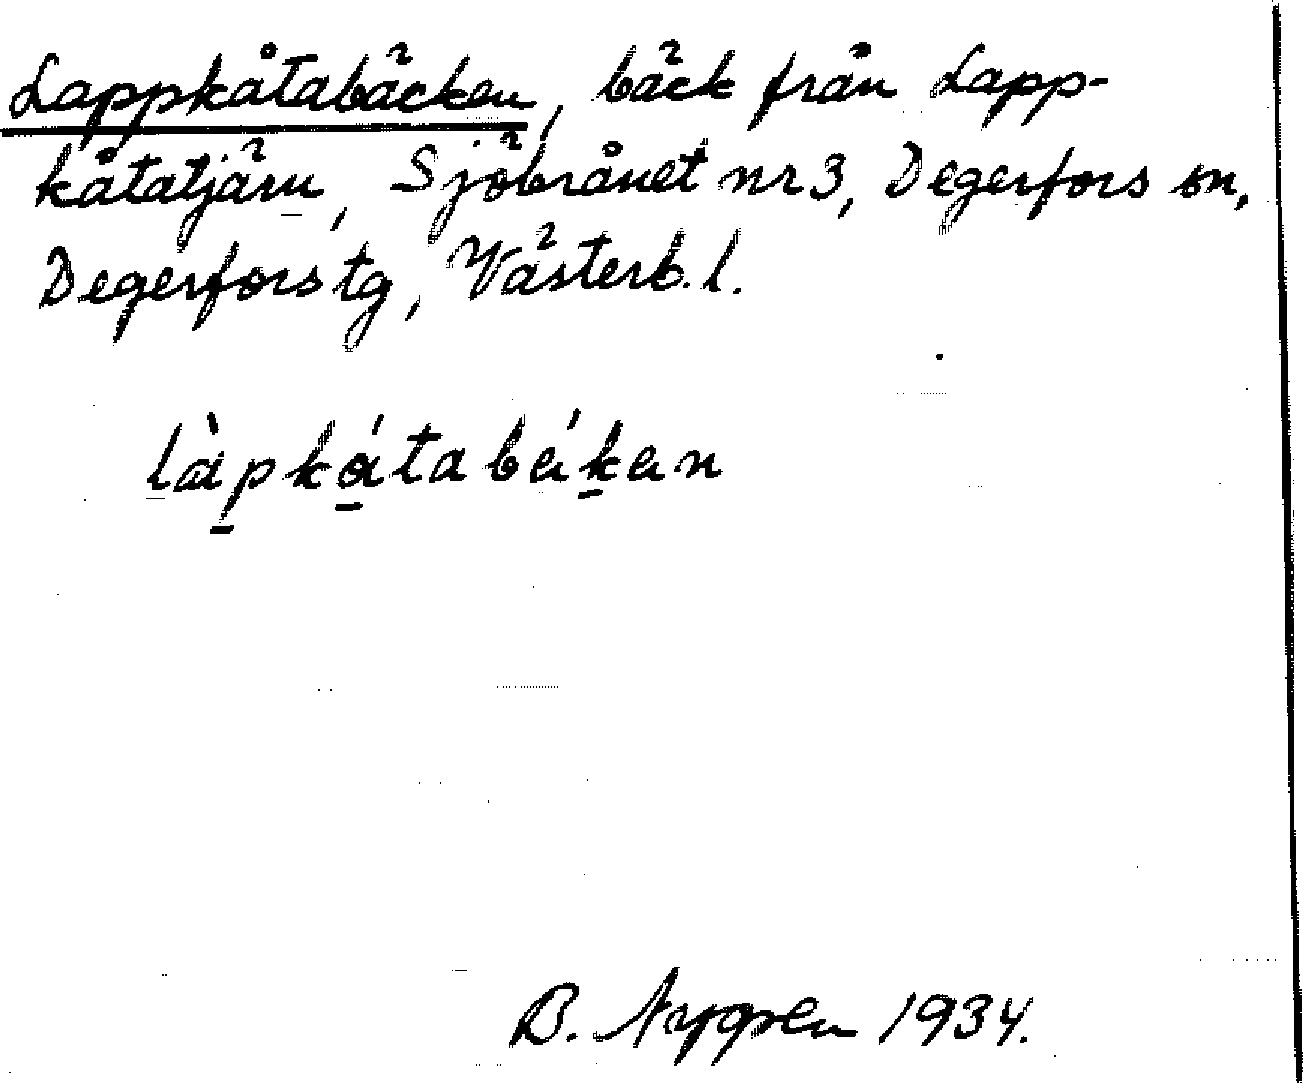 Lappkåtabäcken, bäck från Lapp-
kåtatjärn, Sjöbrånet nr 3, Degerfors sn,
Degerfors tg, Västerb. l.
làpkátabékan
B. Nygren 1934.